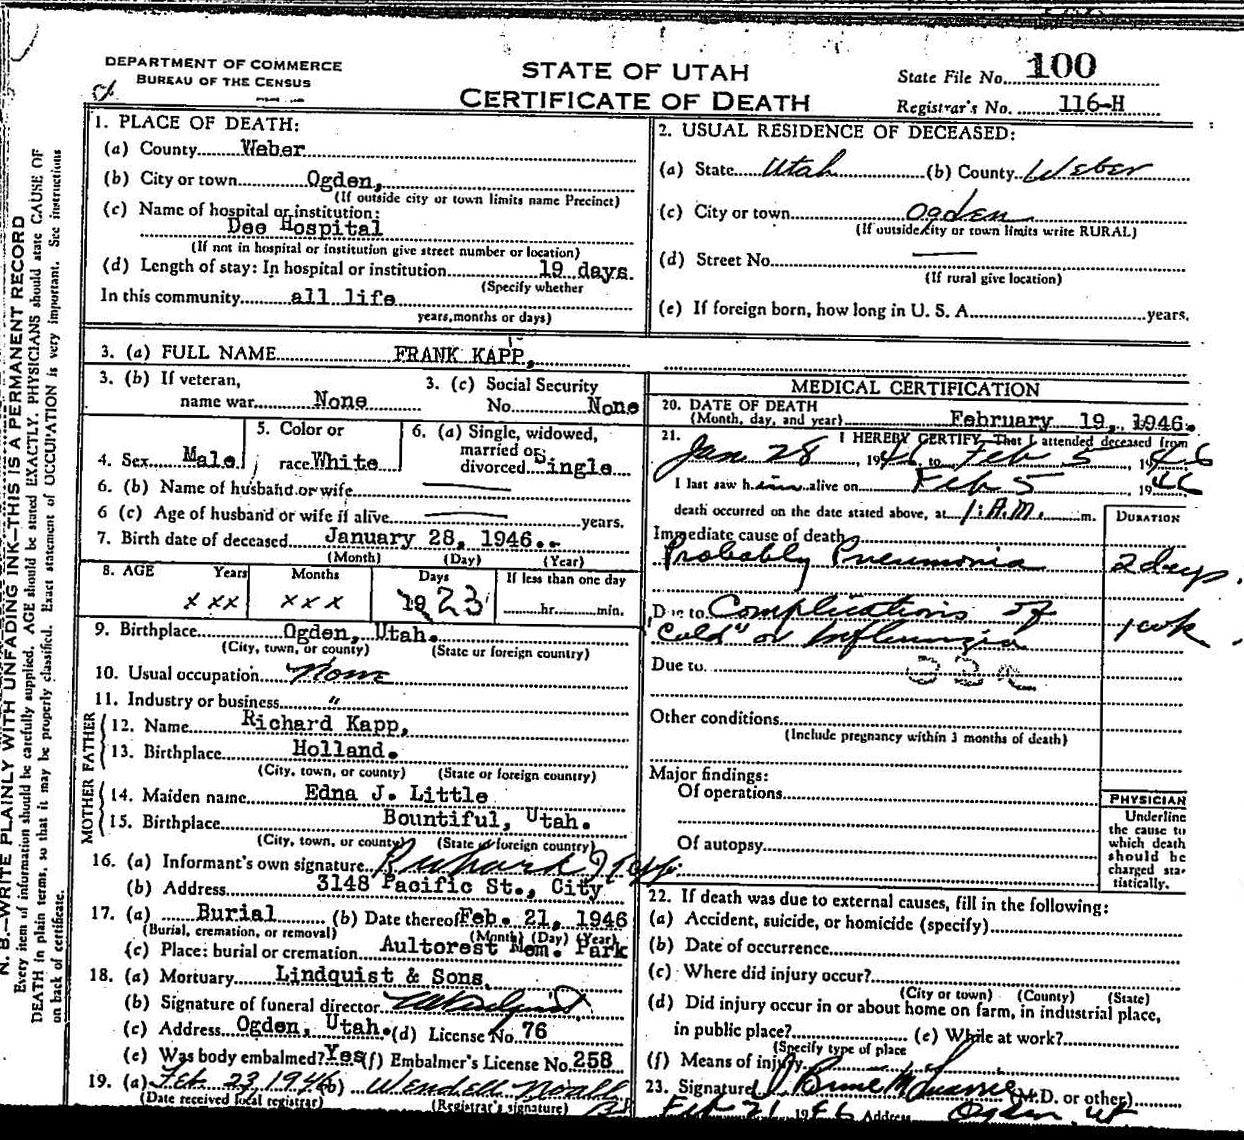 DEPARTMENT OF COMMERCE
BUREAU OF THE CENSUS
STATE OF UTAH
CERTIFICATE OF DEATH
State File No. 100
Registrar's No. 116-H
1. PLACE OF DEATH:
(a) County Weber
(b) City or town Ogden,
(If outside city or town limits name Precinct)
(c) Name of hospital or institution:
Dee Hospital
(If not in hospital or institution give street number or location)
(d) Length of stay: In hospital or institution 19 days.
(Specify whether
In this community all life
years, months or days)
2. USUAL RESIDENCE OF DECEASED:
(a) State Utah (b) County Weber
(c) City or town Ogden
(If outside city or town limits write RURAL)
(d) Street No. —
(If rural give location)
(e) If foreign born, how long in U. S. A. years.
3. (a) FULL NAME FRANK KAPP,
3. (b) If veteran,
name war None
3. (c) Social Security
No. None
4. Sex Male
5. Color or
race White
6. (a) Single, widowed,
married or
divorced Single
6. (b) Name of husband or wife —
6 (c) Age of husband or wife if alive — years.
7. Birth date of deceased January 28, 1946..
(Month) (Day) (Year)
8. AGE Years Months Days If less than one day
x xx xxx 19 23 hr. min.
9. Birthplace Ogden, Utah.
(City, town, or county) (State or foreign country)
10. Usual occupation None
11. Industry or business "
FATHER
12. Name Richard Kapp,
13. Birthplace Holland.
(City, town, or county) (State or foreign country)
MOTHER
14. Maiden name Edna J. Little
15. Birthplace Bountiful, Utah.
(City, town, or county) (State or foreign country)
16. (a) Informant's own signature Richard J Kapp
(b) Address 3148 Pacific St., City
17. (a) Burial (b) Date thereof Feb. 21, 1946
(Burial, cremation, or removal) (Month) (Day) (Year)
(c) Place: burial or cremation Aultorest Mem. Park
18. (a) Mortuary Lindquist & Sons,
(b) Signature of funeral director
(c) Address Ogden, Utah. (d) License No. 76
(e) Was body embalmed? Yes (f) Embalmer's License No. 258
19. (a) Feb 23 1946 (b) Wendell Noall
(Date received local registrar) (Registrar's signature)
MEDICAL CERTIFICATION
20. DATE OF DEATH
(Month, day, and year) February 19, 1946.
21. I HEREBY CERTIFY, That I attended deceased from
Jan 28, 1946 to Feb 5, 1946
I last saw him alive on Feb 5, 1946
death occurred on the date stated above, at 1:A.M. m.
DURATION
Immediate cause of death
Probably Pneumonia 2 days.
Due to Complications of
"Cold" or Influenzia 1 wk.
Due to 33a
Other conditions
(Include pregnancy within 3 months of death)
Major findings:
Of operations
Of autopsy
PHYSICIAN
Underline
the cause to
which death
should be
charged sta-
tistically.
22. If death was due to external causes, fill in the following:
(a) Accident, suicide, or homicide (specify)
(b) Date of occurrence
(c) Where did injury occur?
(City or town) (County) (State)
(d) Did injury occur in or about home on farm, in industrial place,
in public place? (e) While at work?
(Specify type of place
(f) Means of injury
23. Signature (M.D. or other)
Feb 21 1946 Address Ogden, Ut
N. B.—WRITE PLAINLY WITH UNFADING INK—THIS IS A PERMANENT RECORD
Every item of information should be carefully supplied. AGE should be stated EXACTLY. PHYSICIANS should state CAUSE OF
DEATH in plain terms, so that it may be properly classified. Exact statement of OCCUPATION is very important. See instructions
on back of certificate.